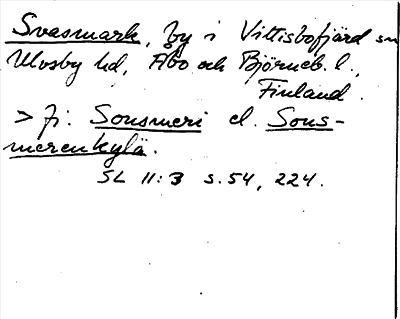 Svasmark, by i Vittisbofjärd sn
Ulvsby hd, Åbo och Björneb. l.,
Finland.
> fi. Sonsmeri el. Sons-
merenkylä.
SL 11:3 s. 54, 224.